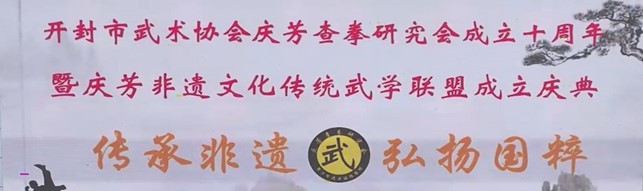 开封市武术协会庆芳查拳研究会成立十周年
暨庆芳非遗文化传统武学联盟成立庆典
传承非遗 武 弘扬国粹